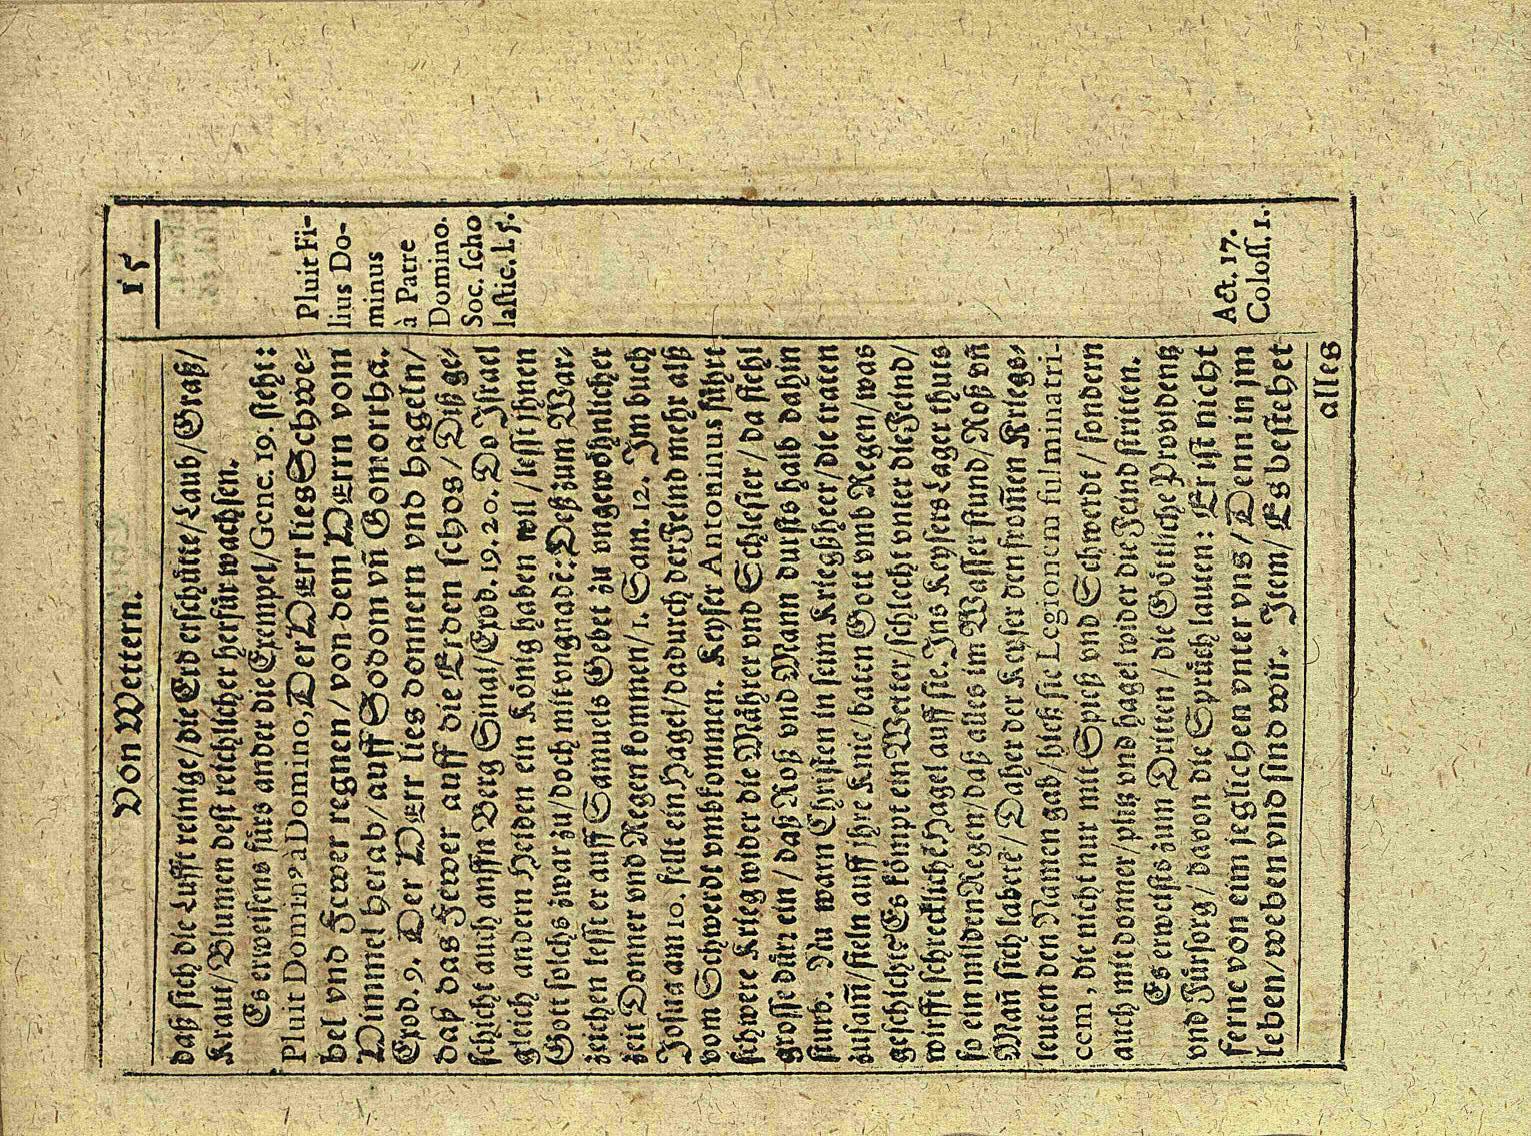 Von Wettern. 15
daß sich die Lufft reinige/die Erd erschütte/Laub/Graß/
Kraut/Blumen dest reichlicher herfür wachsen.
Es erweisens fürs ander die Exempel/Genc. 19. steht:
Pluit Domin9 à Domino, Der HErr lies Schwe-
bel vnd Fewer regnen/von dem HErrn vom
Himmel herab/auff Sodom vñ Gomorrha.
Exod. 9. Der HErr lies donnern vnd hageln/
daß das Fewer auff die Erden schos/Diß ge-
schicht auch auffn Berg Sinai/Exod. 19. 20. Do Israel
gleich andern Heiden ein König haben wil/lesst ihnen
Gott solchs zwar zu/doch mit vngnadē: Deß zum War-
zeichen lesst er auff Samuels Gebet zu vngewöhnlicher
zeit Donner vnd Regen kommen/1. Sam. 12. Im buch
Josua am 10. felle ein Hagel/dadurch der Feind mehr alß
vom Schwerdt vmbkommen. Keyser Antoninus führt
schwere Krieg wider die Mährer vnd Schlesier/da fiehl
grosse dürr ein/daß Roß vnd Mann dursts halb dahin
sturb. Nu warn Christen in seim Kriegßheer/die traten
zusam̃/fieln auff ihre Knie/baten Gott vmb Regen/was
geschicht? Es kömpt ein Wetter/schlecht vnter die Feind/
wirfft schrecklichē Hagel auff sie. Ins Keysers Lager thuts
so ein milden Regen/daß alles im Wasser stund/Roß vñ
Mañ sich labete/Daher der Keyser den from̃en Kriegs-
leuten den Namen gab/hieß sie Legionem fulminatri-
cem, die nicht nur mit Spieß vnd Schwerdt/sondern
auch mit donner/plitz vnd hagel wider die Feind stritten.
Es erweists zum Dritten/die Göttliche Providentz
vnd Fürsorg/davon die Sprüch lauten: Er ist nicht
ferne von eim jeglichen vnter vns/Denn in jm
leben/weben vnd sind wir. Item/Es bestehet
alles
Pluit Fi-
lius Do-
minus
à Patre
Domino.
Soc. scho
lastic. l. 5.
Act. 17.
Coloss. 1.